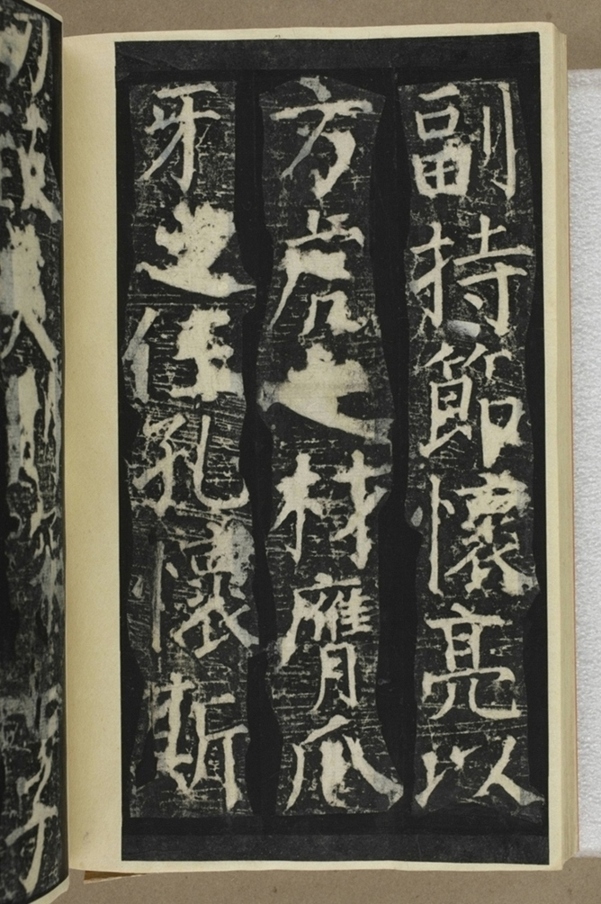 副持節懷亮以
方虎之材膺爪
牙之任孔懷斯